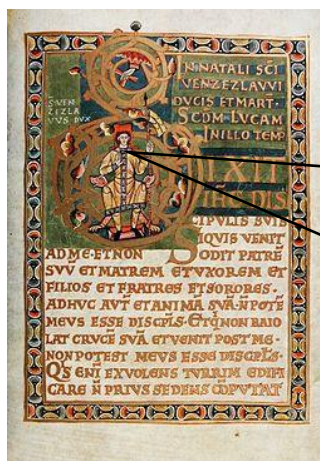 IN NATALI SCI
VENZEZLAVVI
DVCIS ET MART·
SCDM LVCAM
IN ILLO TEMP
S·VEN
ZIZLA
VVS DVX
DIXIT
IHC DIS
CIPVLIS SVIS
SIQVIS VENIT
AD ME·ET NON ODIT PATRĒ
SVV̄ ET MATREM ET VXOREM ET
FILIOS ET FRATRES ET SORORES·
ADHVC AVT̄ ET ANIMA SVĀ·N̄ POTĒ
MEVS ESSE DISCPLS̄·ET Q̄ NON BAIO
LAT CRVCĒ SVĀ ET VENIT POST ME·
NON POTEST MEVS ESSE DISCPLS̄·
QS ENĪ EX VOLENS TVRRIM EDIFI
CARE N̄ PRIVS SEDENS CŌPVTAT